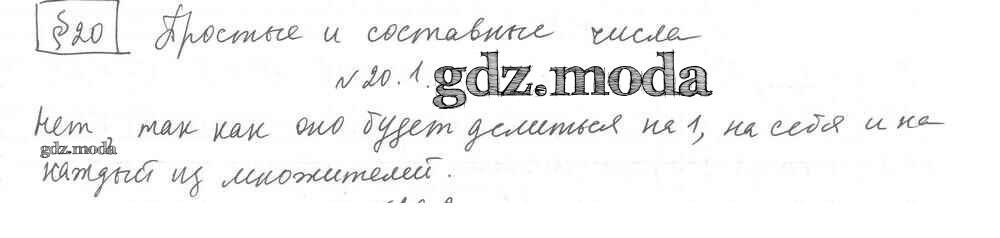 §20 Простые и составные числа
№20.1. gdz.moda
Нет так как оно будет делиться на 1, на себя и на
gdz.moda
каждый из множителей.